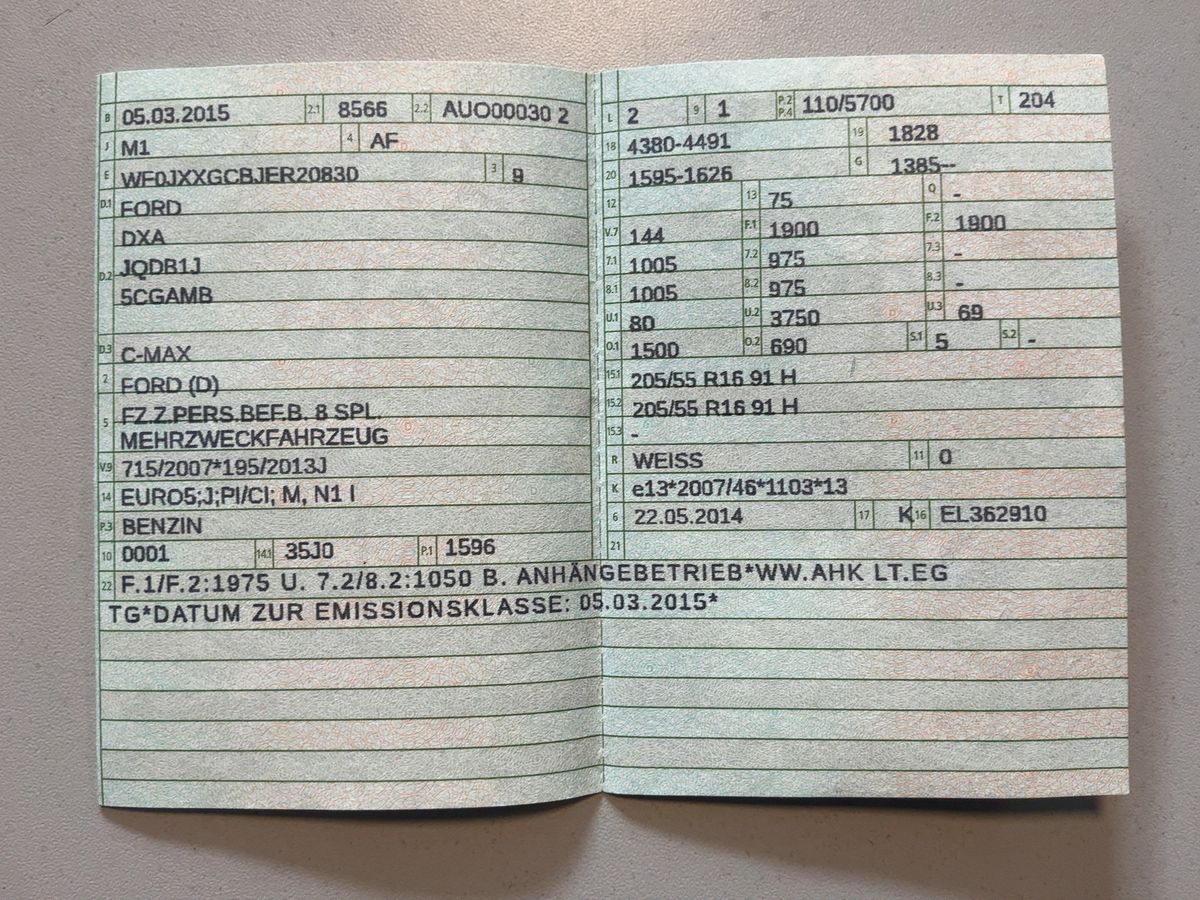 B 05.03.2015 2.1 8566 2.2 AUO00030 2
J M1 4 AF
E WF0JXXGCBJER20830 3 9
D.1 FORD
DXA
D.2 JQDB1J
5CGAMB
D.3 C-MAX
2 FORD (D)
5 FZ.Z.PERS.BEF.B. 8 SPL.
MEHRZWECKFAHRZEUG
V.9 715/2007*195/2013J
14 EURO5;J;PI/CI; M, N1 I
P.3 BENZIN
10 0001 14.1 35J0 P.1 1596
L 2 9 1 P.2 P.4 110/5700 T 204
18 4380-4491 19 1828
20 1595-1626 G 1385--
12 13 75 Q -
V.7 144 F.1 1900 F.2 1900
7.1 1005 7.2 975 7.3 -
8.1 1005 8.2 975 8.3 -
U.1 80 U.2 3750 U.3 69
O.1 1500 O.2 690 S.1 5 S.2 -
15.1 205/55 R16 91 H
15.2 205/55 R16 91 H
15.3 -
R WEISS 11 0
K e13*2007/46*1103*13
6 22.05.2014 17 K 16 EL362910
21
22 F.1/F.2:1975 U. 7.2/8.2:1050 B. ANHÄNGEBETRIEB*WW.AHK LT.EG
TG*DATUM ZUR EMISSIONSKLASSE: 05.03.2015*